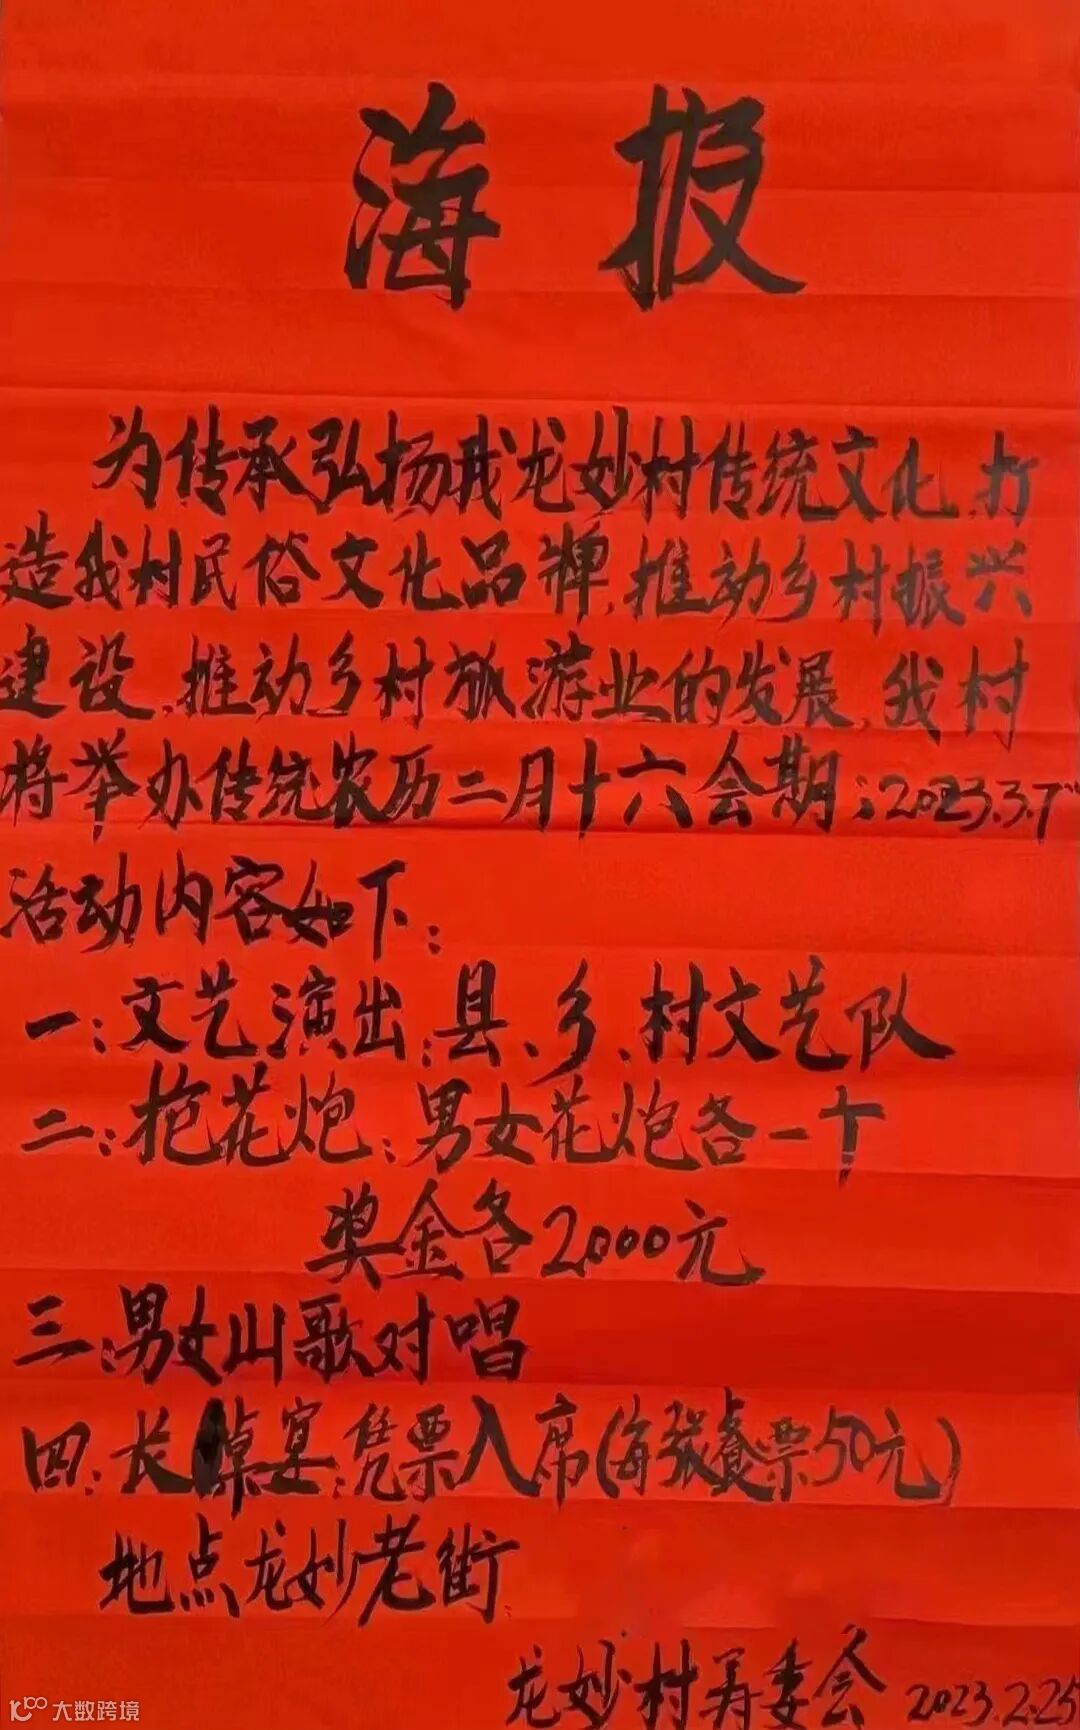 海报
为传承弘扬我龙妙村传统文化,打
造我村民俗文化品牌,推动乡村振兴
建设,推动乡村旅游业的发展,我村
将举办传统农历二月十六会期:2023.3.7
活动内容如下:
一:文艺演出:县、乡、村文艺队
二:抢花炮:男女花炮各一个
奖金各2000元
三:男女山歌对唱
四:长桌宴:凭票入席(每张餐票50元)
地点龙妙老街
龙妙村委会 2023.2.25
大数跨境